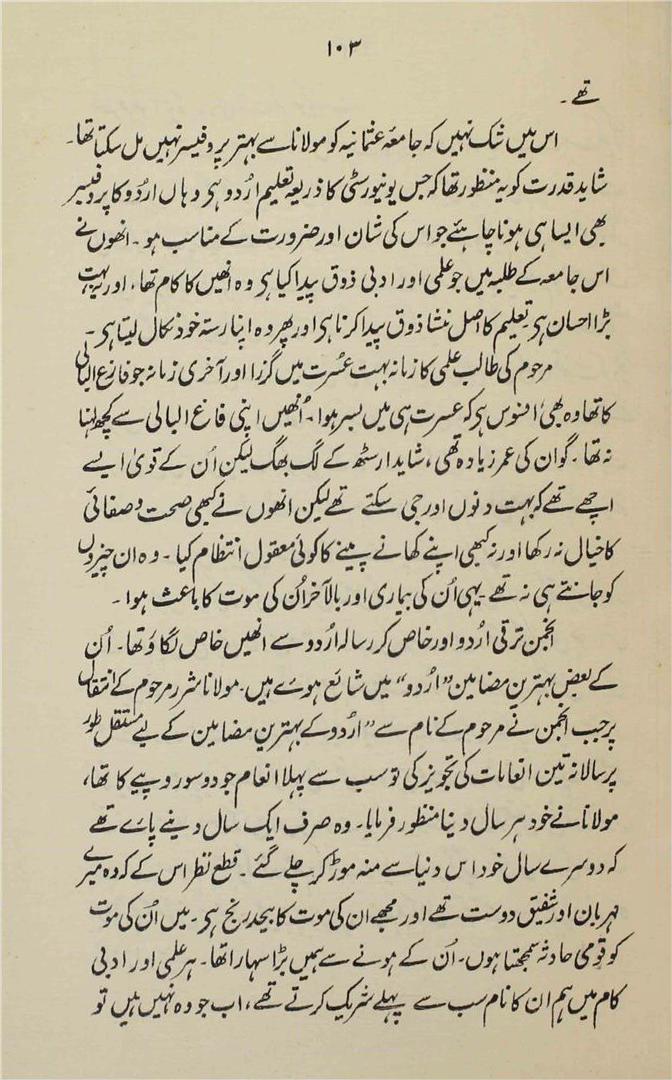 ۱۰۳
تھے ۔
اس میں شک نہیں کہ جامعۂ عثمانیہ کو مولانا سے بہتر پروفیسر نہیں مل سکتا تھا۔
شاید قدرت کو یہ منظور تھا کہ جس یونیورسٹی کا ذریعہ تعلیم اُردو ہی وہاں اُردو کا پروفیسر
بھی ایسا ہی ہونا چاہئے جو اس کی شان اور ضرورت کے مناسب ہو ۔ انھوں نے
اس جامعہ کے طلبہ میں جو علمی اور ادبی ذوق پیدا کیا ہی وہ انھیں کا کام تھا، اور یہ بہت
بڑا احسان ہی تعلیم کا اصل منشا ذوق پیدا کرنا ہی اور پھر وہ اپنا رستہ خود نکال لیتا ہی ۔
مرحوم کی طالب علمی کا زمانہ بہت عسرت میں گزرا اور آخری زمانہ جو فارغ البالی
کا تھا وہ بھی افسوس ہی کہ عسرت ہی میں بسر ہوا ۔ اُنھیں اپنی فارغ البالی سے کچھ لہنا
نہ تھا ۔ گو ان کی عمر زیادہ تھی ، شاید ارسٹھ کے لگ بھگ لیکن اُن کے قویٰ ایسے
اچھے تھے کہ بہت دنوں اور جی سکتے تھے لیکن انھوں نے کبھی صحت و صفائی
کا خیال نہ رکھا اور نہ کبھی اپنے کھانے پینے کا کوئی معقول انتظام کیا ۔ وہ ان چیزوں
کو جانتے ہی نہ تھے یہی اُن کی بیماری اور بالآخر اُن کی موت کا باعث ہوا ۔
انجمن ترقی اُردو اور خاص کر رسالہ اُردو سے انھیں خاص لگاؤ تھا ۔ اُن
کے بعض بہترین مضامین ”اُردو“ میں شائع ہوے ہیں ۔ مولانا شرر مرحوم کے انتقال
پر جب انجمن نے مرحوم کے نام سے ”اُردو کے بہترین مضامین کے لیے مستقل طور
پر سالانہ تین انعامات کی تجویز کی تو سب سے پہلا انعام جو دو سو روپیے کا تھا،
مولانا نے خود ہر سال دینا منظور فرمایا ۔ وہ صرف ایک سال دینے پائے تھے
کہ دوسرے سال خود اس دنیا سے منہ موڑ کر چلے گئے ۔ قطع نظر اس کے کہ وہ میرے
مہربان اور شفیق دوست تھے اور مجھے ان کی موت کا بیحد رنج ہی ۔ میں اُن کی موت
کو قومی حادثہ سمجھتا ہوں ۔ اُن کے ہونے سے ہمیں بڑا سہارا تھا ۔ ہر علمی اور ادبی
کام میں ہم ان کا نام سب سے پہلے شریک کرتے تھے، اب جو وہ نہیں ہیں تو